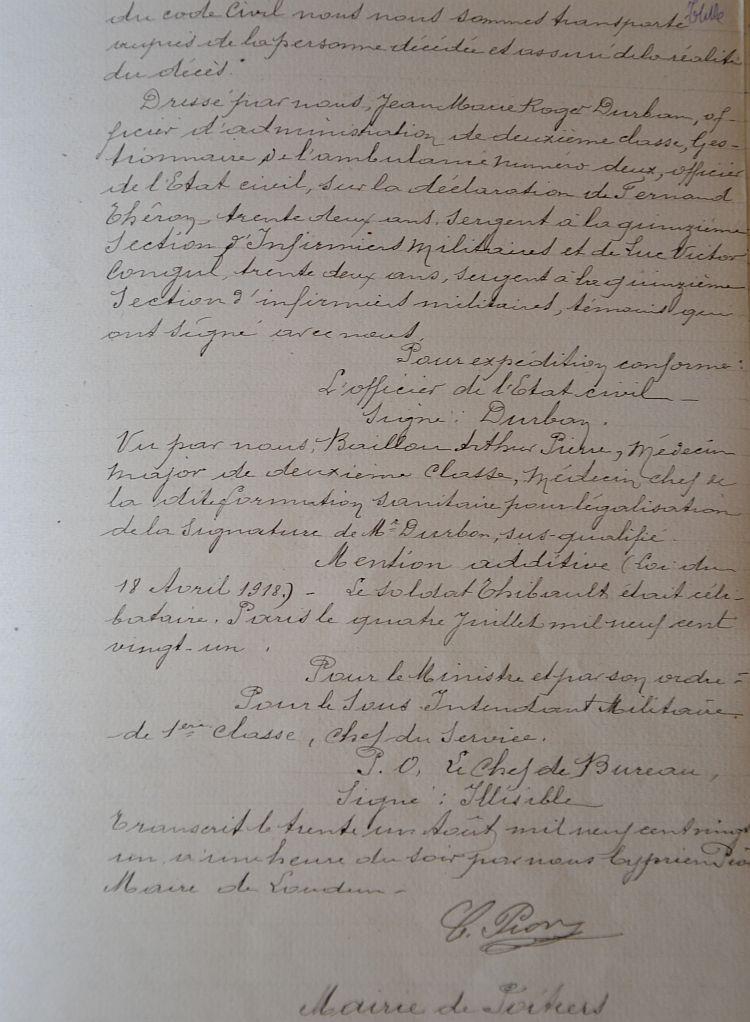 du code Civil nous nous sommes transporté
auprès de la personne décédée et assuré de la réalité
du décès.
Dressé par nous, Jean Marie Roger Durban, of-
ficier d'administration de deuxième classe, Ges-
tionnaire de l'ambulance numéro deux, officier
de l'Etat civil, sur la déclaration de Fernand
Théron, trente deux ans, sergent à la quinzième
Section d'Infirmiers Militaires et de Luc Victor
trente deux ans, sergent à la quinzième
Section d'infirmiers militaires, témoins qui
ont signé avec nous.
Pour expédition conforme :
L'officier de l'Etat civil -
Signé : Durban.
Vu par nous, Baillon Arthur Pierre, Médecin
Major de deuxième Classe, Médecin chef de
la dite formation sanitaire pour légalisation
de la signature de Mr Durban, sus-qualifié.
Mention additive (Loi du
18 Avril 1918.) - Le soldat Thibault était céli-
bataire. Paris le quatre Juillet mil neuf cent
vingt-un.
Pour le Ministre et par son ordre =
Pour le Sous Intendant Militaire
de 1ère Classe, Chef du Service.
P. O. Le Chef de Bureau,
Signé : Illisible
Transcrit le trente un Août mil neuf cent vingt
un à une heure du soir par nous Cyprien
Maire de Loudun -
Mairie de Poitiers